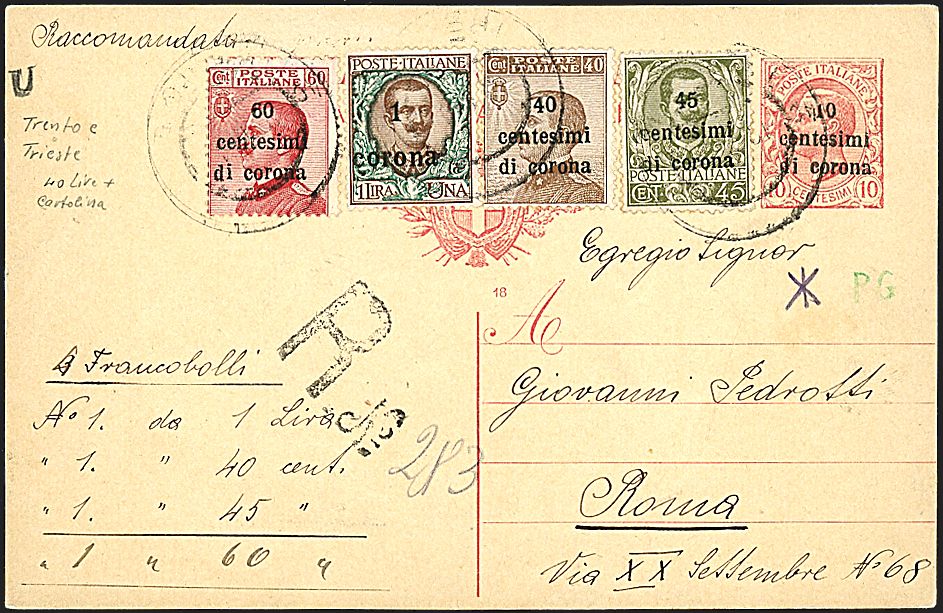 Raccomandata
U
Trento e
Trieste
40 Lire +
Cartolina
Cent POSTE ITALIANE 60
60
centesimi
di corona
POSTE·ITALIANE
1
corona
1 LIRA UNA
Cent POSTE ITALIANE 40
40
centesimi
di corona
45
centesimi
di corona
POSTE·ITALIANE
CENT. 45
POSTE ITALIANE
10
centesimi
di corona
10 CENTESIMI 10
Egregio Signor
18
A
PG
R
4 Francobolli
No 1. da 1 Lira
" 1. " 40 cent.
" 1. " 45 "
" 1 " 60 "
283
Giovanni Pedrotti
Roma
Via XX Settembre No 68